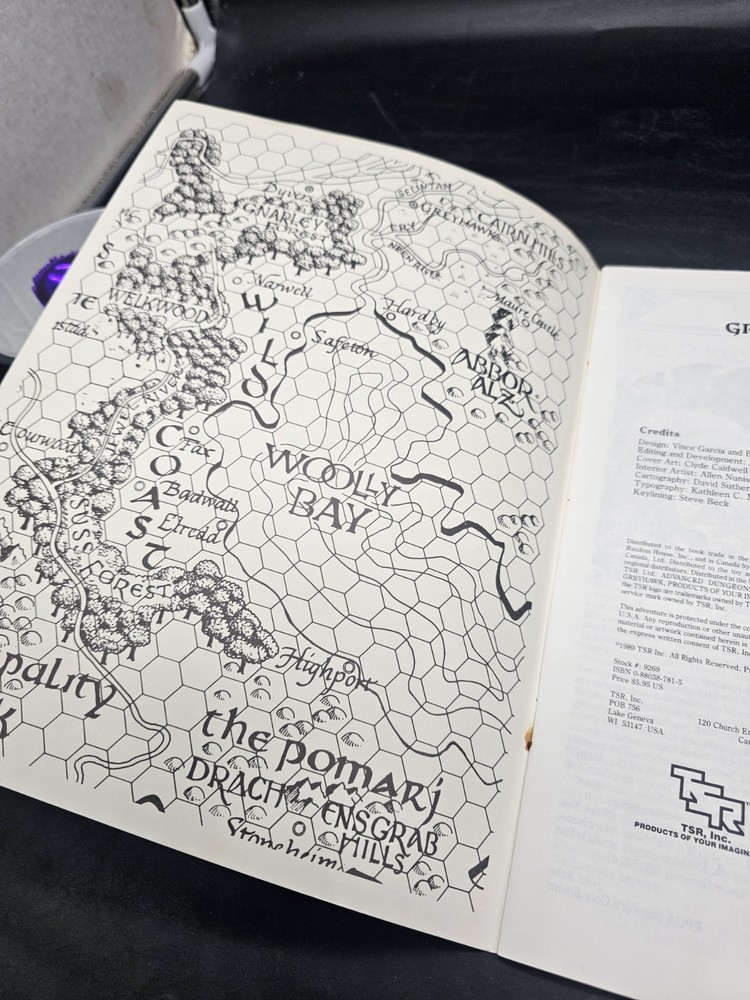 Dyvers
GNARLEY
FOREST
SELINTAN
GREYHAWK
CAIRN HILLS
WELKWOOD
Narwell
WILD
Safeton
Hardby
Maure Castle
ABBOR
ALZ
RIVER
COAST
Fax
Badwall
Elredd
WOOLLY
BAY
SUSS
FOREST
Highport
pality
the pomarj
DRACH ENSGRAB
HILLS
Stoneheim
GR
Credits
Design: Vince Garcia and B
Editing and Development:
Cover Art: Clyde Caldwell
Interior Artist: Allen Nunis
Cartography: David Suther
Typography: Kathleen C.
Keylining: Steve Beck
Distributed to the book trade in the
Random House, Inc., and in Canada by
Canada, Ltd. Distributed to the toy a
regional distributors. Distributed in the
TSR Ltd. ADVANCED DUNGEONS
GREYHAWK, PRODUCTS OF YOUR IM
the TSR logo are trademarks owned by T
service mark owned by TSR, Inc.
This adventure is protected under the co
U.S.A. Any reproduction or other unau
material or artwork contained herein is
the express written consent of TSR, In
©1989 TSR Inc. All Rights Reserved. Pr
Stock #: 9269
ISBN 0-88038-781-5
Price $5.95 US
TSR, Inc.
POB 756
Lake Geneva
WI 53147 USA
120 Church En
Ca
TSR
TSR, Inc.
PRODUCTS OF YOUR IMAGIN